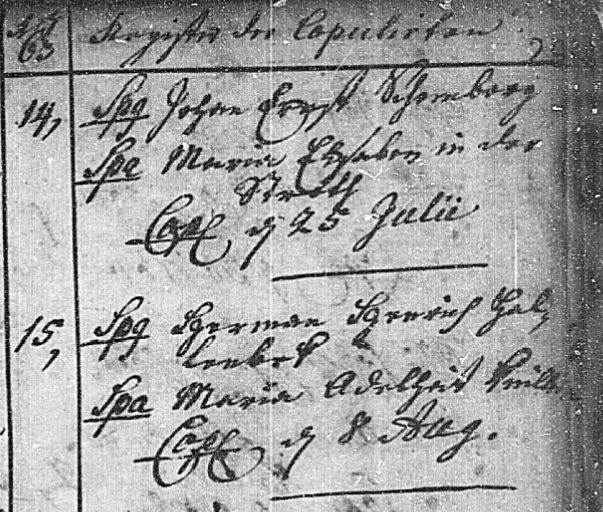 63 Register der Copulirten
14, Spq Johan Ernst Schomberg
Spa Maria Elsaben in der
Stroth
Cop d 25 Julii
15, Spq Herman Henrich Hal,
lenbek
Spa Maria Adelheit
Cop d 8 Aug.